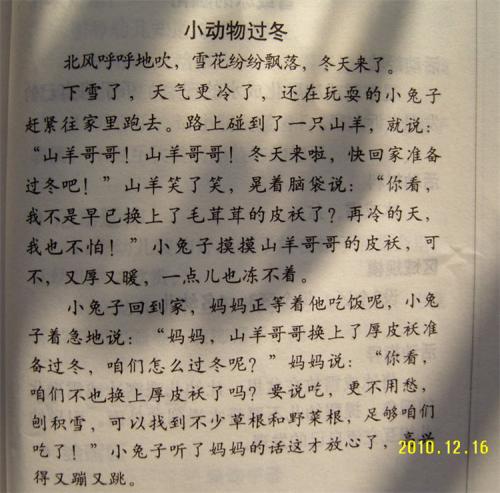 小动物过冬
北风呼呼地吹，雪花纷纷飘落，冬天来了。
下雪了，天气更冷了，还在玩耍的小兔子
赶紧往家里跑去。路上碰到了一只山羊，就说：
“山羊哥哥！山羊哥哥！冬天来啦，快回家准备
过冬吧！”山羊笑了笑，晃着脑袋说：“你看，
我不是早已换上了毛茸茸的皮袄了？再冷的天，
我也不怕！”小兔子摸摸山羊哥哥的皮袄，可
不，又厚又暖，一点儿也冻不着。
小兔子回到家，妈妈正等着他吃饭呢，小兔
子着急地说：“妈妈，山羊哥哥换上了厚皮袄准
备过冬，咱们怎么过冬呢？”妈妈说：“你看，
咱们不也换上厚皮袄了吗？要说吃，更不用愁，
刨积雪，可以找到不少草根和野菜根，足够咱们
吃了！”小兔子听了妈妈的话这才放心了，高兴
得又蹦又跳。
2010.12.16